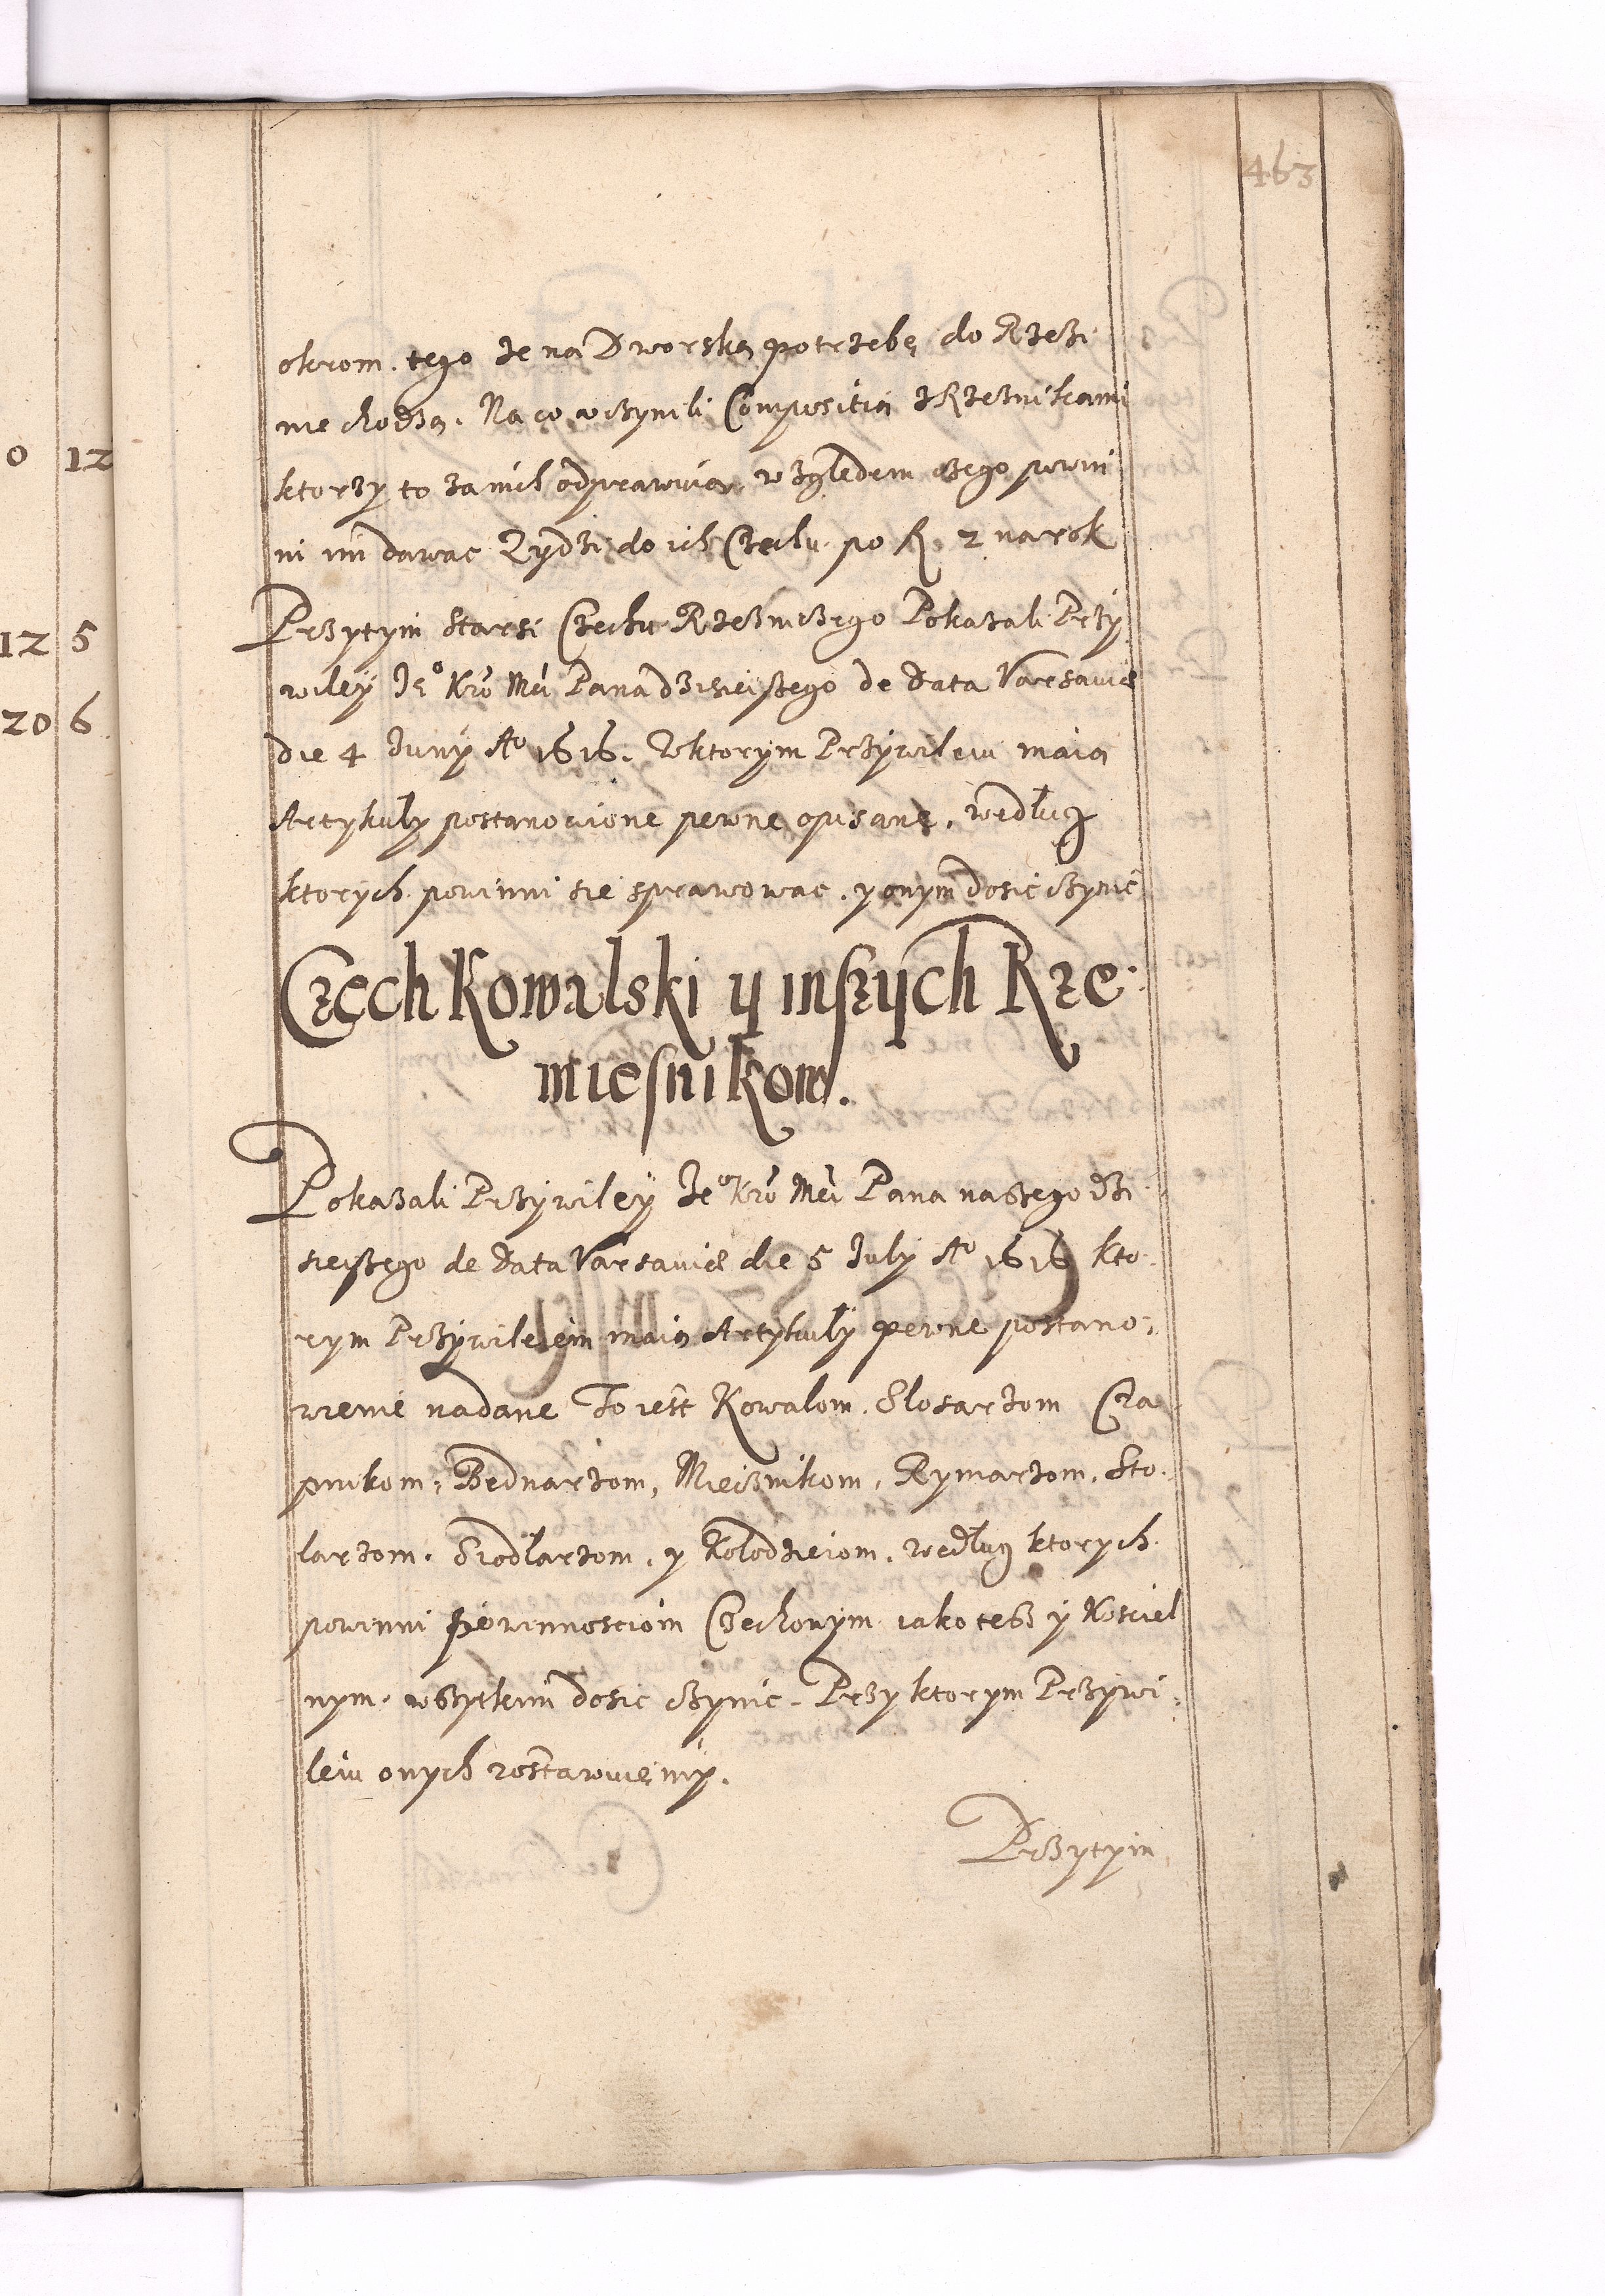 463
okrom. tego że na Dworską potrzebę do Rzezi
nie chodzą. Na co uczynili Compositią z Rzeznikami
ktorzy to za nich odprawuią względem czego powin
ni im dawac Zydzi do ich Czechu po R. 2 na rok
Przytym Starsi Czechu Rzezniczego Pokazali Przy
wiley Jeᵒ Kro Mci Pana dzisieiszego de data Varsaviæ
die 4 Juny Aᵒ 1616. W ktorym Przywileiu maią
Artykuly postanowione pewne opisane, według
ktorych powinni sie sprawowac. y onym dosic czynic
Czech Kowalski y inszych Rze:
miesnikow.
Pokazali Przywiley Jeᵒ Kro Mci Pana naszego dzi
sieiszego de data Varsaviæ die 5 July Aᵒ 1616 kto
rym Przywileiem maią Artykuly pewne postano:
wienie nadane To iest Kowalom. Slosarzom Cza
pnikom, Bednarzom, Miecznikom, Rymarzom, Sto
larzom. Siodlarzom. y Kolodzieiom. według ktorych
powinni powinnosciom Czechowym iako tesz y Kosciel
nym. wszytkim dosic czynic. Przy ktorym Przywi:
leiu onych zostawuiemy.
Przytym
0 12
12 5
20 6